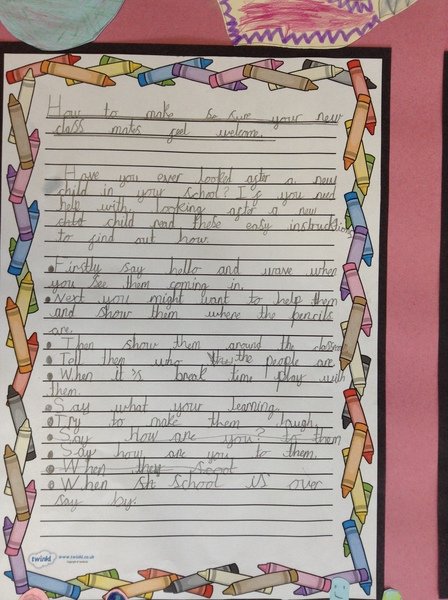 How to make so sure your new
class mates feel welcome.
Have you ever looked after a new
child in your school? If you need
help with looking after a new
child child read these easy instructions
to find out how.
Firstly say hello and wave when
you see them coming in.
Next you might want to help them
and show them where the pencils
are.
Then show them around the
Tell them who the people are
When it is break time play with
them.
Say what your learning.
Try to make them laugh.
Say How are you? to them
Say how are you to them.
When they scool
When sh school is over
say by.
twinkl www.twinkl.co.uk